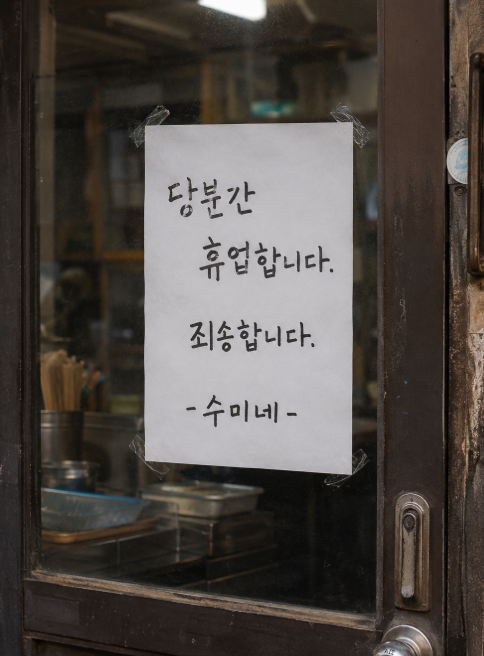 당분간
휴업합니다.
죄송합니다.
-수미네-